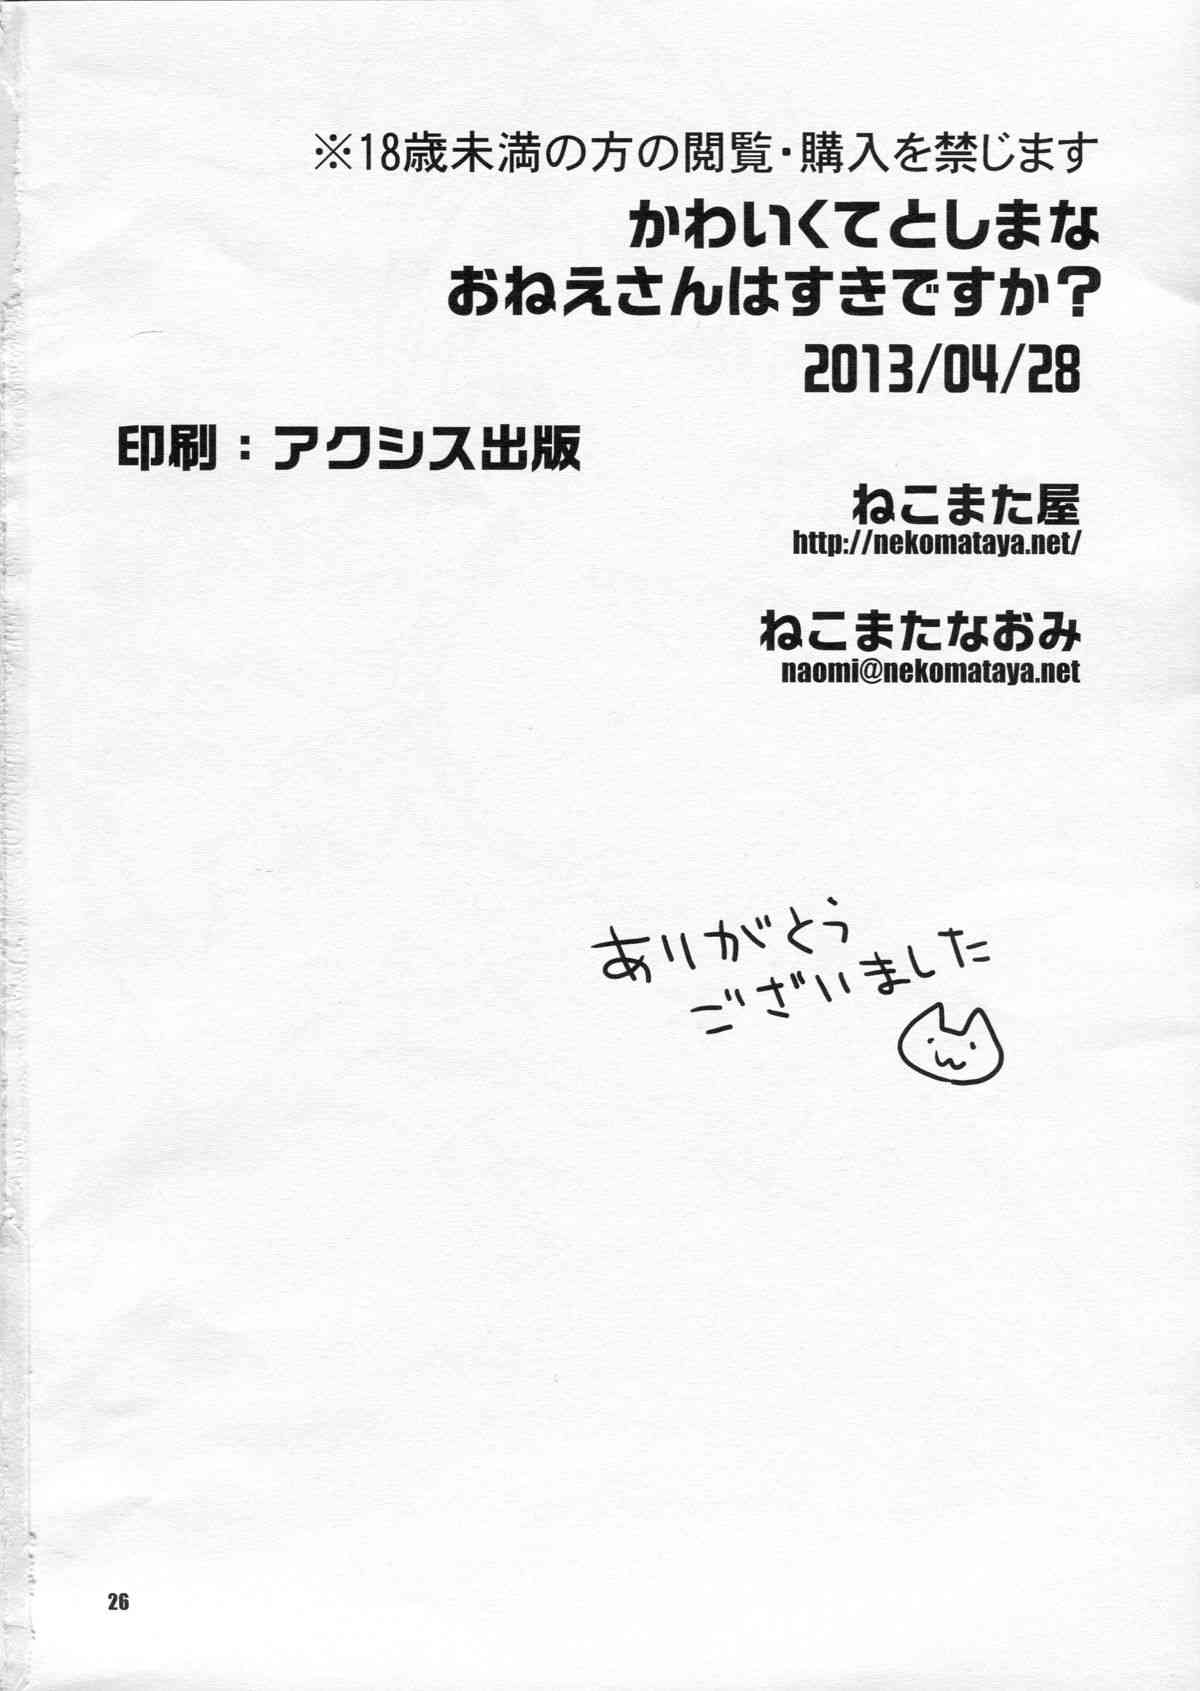 ※18歳未満の方の閲覧・購入を禁じます
かわいくてとしまな
おねえさんはすきですか？
2013/04/28
印刷：アクシス出版
ねこまた屋
http://nekomataya.net/
ねこまたなおみ
naomi@nekomataya.net
ありがとう
ございました
26